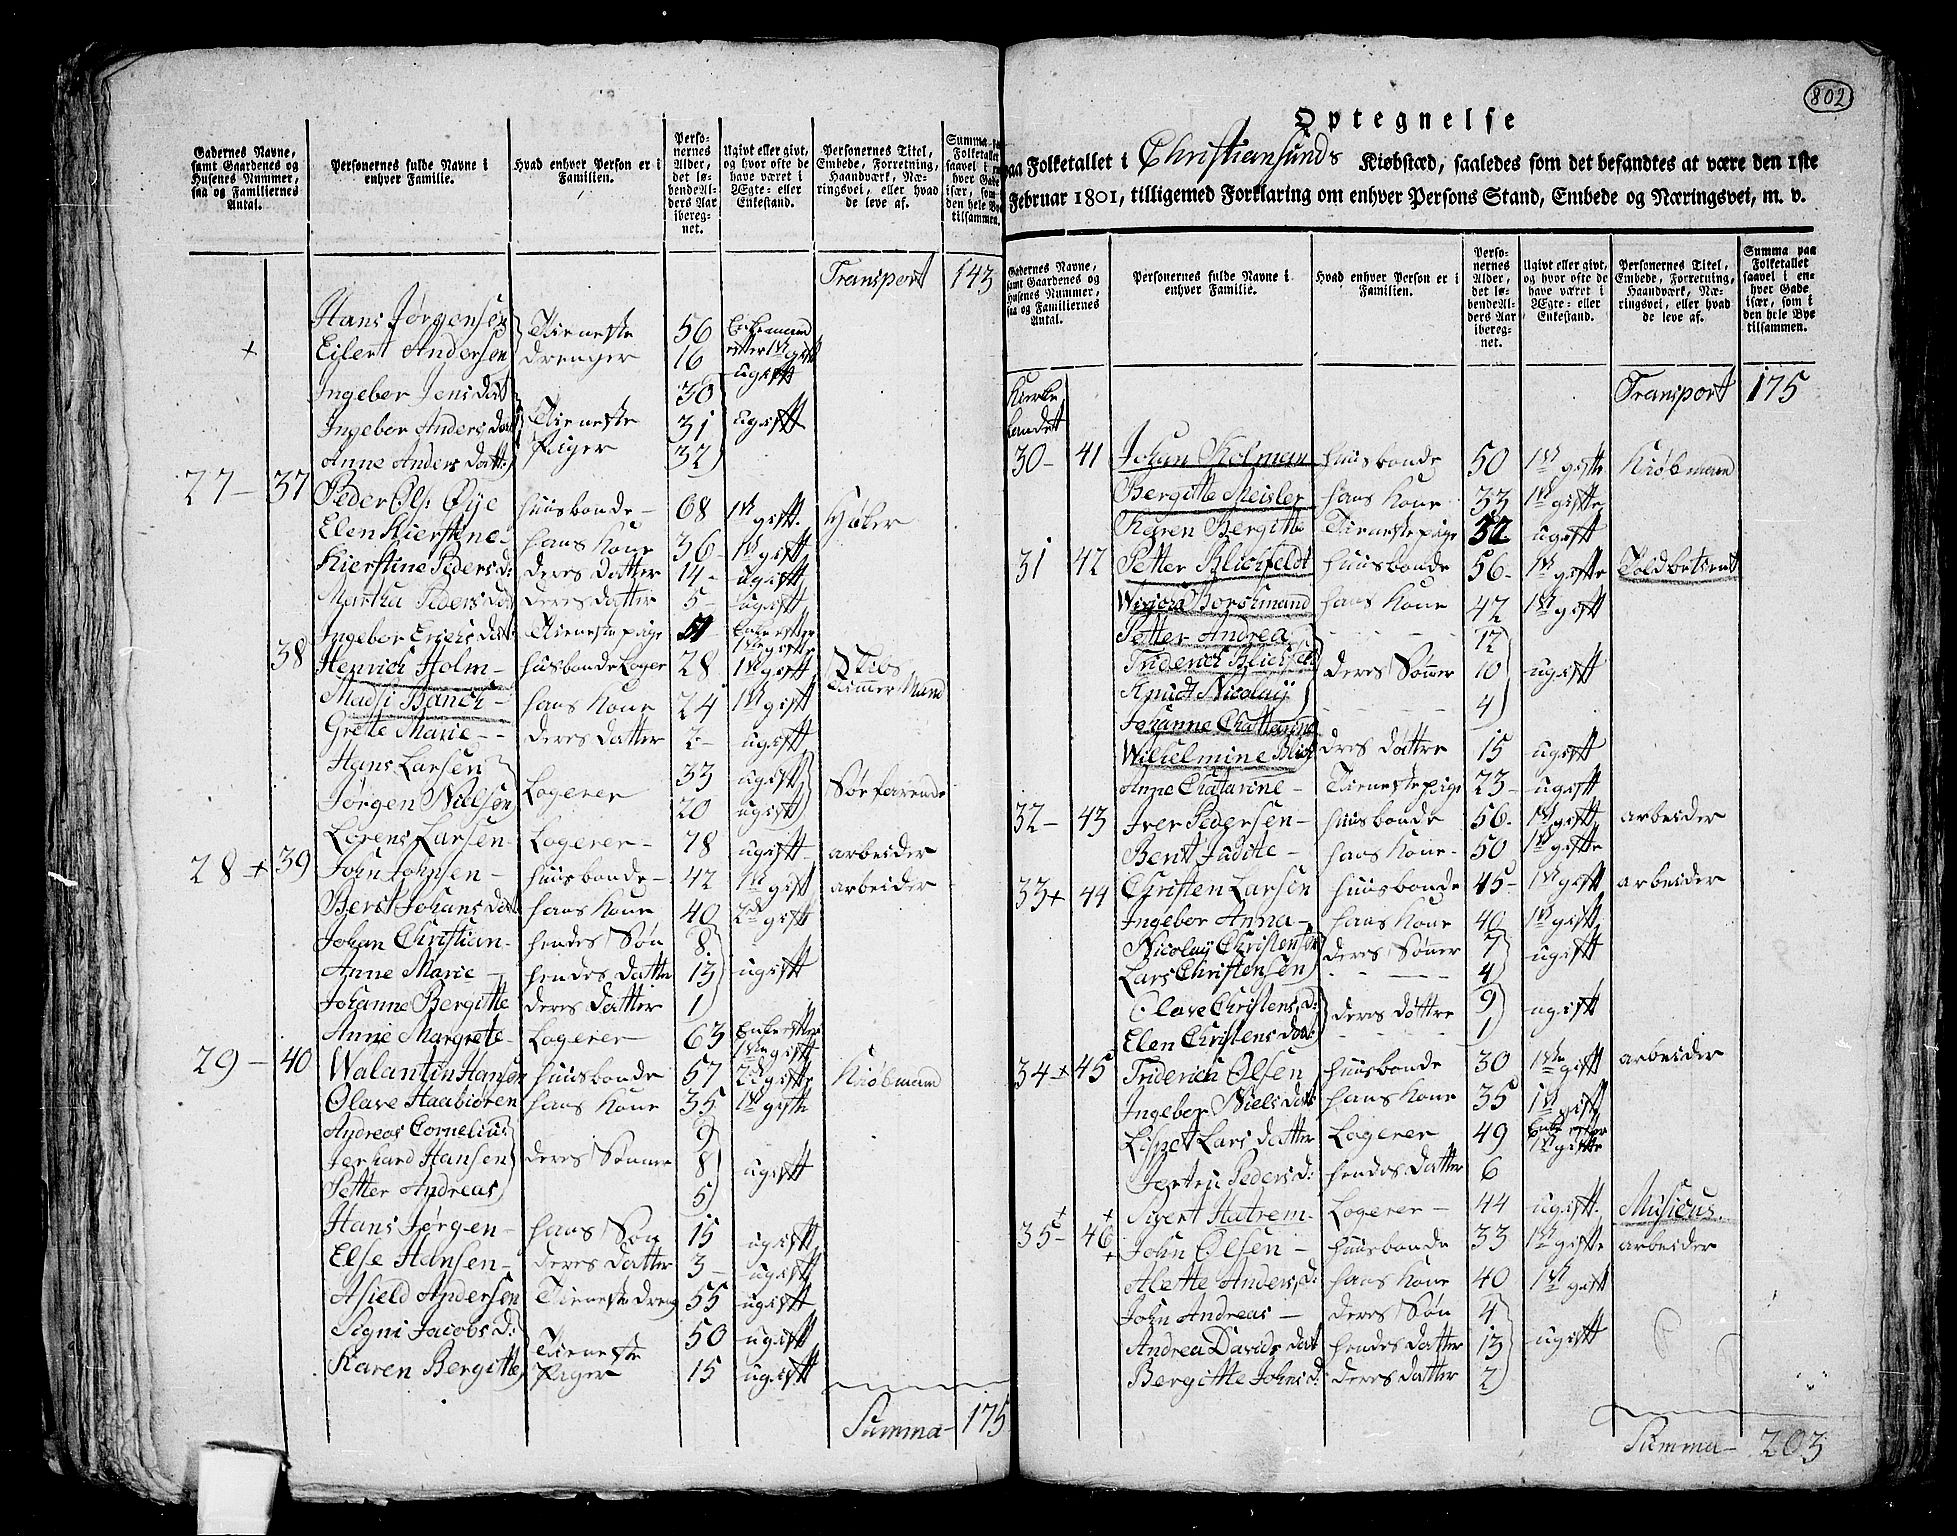 Gadernes Navne, samt Gaardenes og Husenes Nummer, saa og Familiernes Antal.
Personernes fulde Navne i enhver Familie.
Hvad enhver Person er i Familien.
Personernes Alder, det løbende Alders Aar iberegnet.
Ugivt eller givt, og hvor ofte de have været i Ægte- eller Enkestand.
Personernes Titel, Embede, Forretning, Haandværk, Næringsvei, eller hvad de leve af.
Transport 143
Hans Jørgensen Tieneste 56 Enkemand
+ Eilert Andersen drenger 16 ugift
Ingebor Jensdat 30
Ingebor Anders dat Tieneste 31 ugift
Anne Anders datt: Piger 32
27 – 37 Peder Ols: Øye huusbonde – 68 1st gift. Høker
Elen Kierstine – hans Kone 36 – 1st gift.
Kierstine Peders d: deres datter 14 – ugift
Martha Peders dat deres datter 5 – ugift
Ingebor Erichs dat: Tienestepige 51 Enke efter 1ste gifte
38 Henrich Holm – husbonde Loger 28 1st gift Skibs Timmer Mand
Madsi Banch – hans Kone 24 1st gift
Grete Marie – – deres datter 2 – ugift
Hans Larsen 33 ugift
Jørgen Nielsen Logerer 20 ugift Søefarende
Lorens Larsen – Logerer – 78 ugift – arbeider
28 + 39 John Johnsen – huusbonde – 42 1st gift arbeider
Beret Johans dat hans Kone 40 2d gift
Johan Christian – hendes Søn 8
Anne Marie – hendes datter 13 ugift
Johanne Bergitte deres datter 1
Anne Margrete – Logerer – 63 Enke efter 1ste gift
29 – 40 Walantin Hansen huusbonde 57 2d gifte Kiøbmand
Olave Haabiøren hans Kone 35 1st gifte
Andreas Cornelius 9
Jerhard Hansen deres Sønner 8 ugift
Petter Andreas 5
Hans Jørgen – hans Søn 15 ugift
Else Hansen – deres datter 3 – ugift
Asield Andersen Tieneste dreng 55 ugift
Signi Jacobs d: Tieneste 50 ugift
Karen Bergitte Piger 15 ugift
Summa – 175
802
Optegnelse
paa Folketallet i Christiansunds Kiøbstæd, saaledes som det befandtes at være den 1ste
Februar 1801, tilligemed Forklaring om enhver Persons Stand, Embede og Næringsvei, m. v.
Gadernes Navne, samt Gaardenes og Husenes Nummer, saa og Familiernes Antal.
Personernes fulde Navne i enhver Familie.
Hvad enhver Person er i Familien.
Personernes Alder, det løbende Alders Aar iberegnet.
Ugivt eller givt, og hvor ofte de have været i Ægte- eller Enkestand.
Personernes Titel, Embede, Forretning, Haandværk, Næringsvei, eller hvad de leve af.
Summa paa Folketallet saavel i enhver Gade især, som i den hele Bye tilsammen.
Kirke Landet
Transport 175
30 – 41 Johan Kolman huusbonde 50 1st gifte Kiøbmand
Bergitte Meisler hans Kone 33 1st gifte
Karen Bergitte Tienestepige 32 ugift
31 42 Petter Blichfeldt huusbonde 56 – 1st gifte Toldbetient
hans Kone 42 1st gift
Petter Andrea 12
Friderich Blichfel deres Sønner 10 ugift
Knudt Nicolay 4
Johanne Chattarine
Wilhelmine Blich deres døttre 15 ugift
Anne Chatarine – Tienestepige 23 – ugift
32 – 43 Iver Pedersen – huusbonde 56 – 1st gift arbeider
Berit Judite – hans Kone – 50 1st gifte
33 + 44 Christen Larsen huusbonde 45 – 1st gift arbeider
Ingebor Anna – hans Kone 40 1st gift.
Nicolay Christensen deres Sønner 7 ugift
Lars Christensen 4
Olave Christens d: deres døttre 9 ugift
Elen Christens dat: 1
34 + 45 Friderich Olsen huusbonde 30 1ste gift arbeider
Ingebor Niels dat hans Kone 35 1st gift
Liszet Lars datter Logerer 49 Enke efter 1st gifte
Jertru Peders d: hendes datter 6
Sivert Hatrem – Logerer – 44 ugift. Musicus.
35 – 46 John Olsen – huusbonde 33 1st gifte arbeider
Alette Anders d: hans Kone 40 1st gift
John Andreas – deres Søn 4
Andrea Davids dat hendes datter 13 ugift
Bergitte Johns d: deres datter 2
Summa – 203